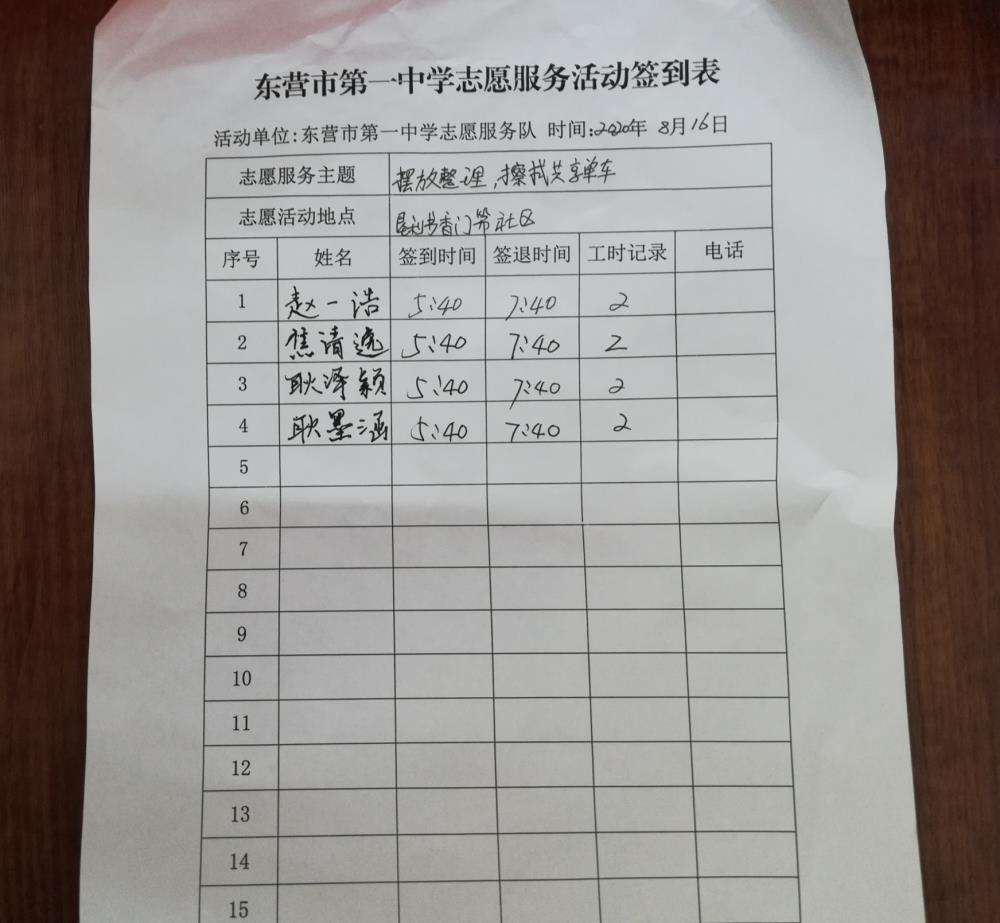 东营市第一中学志愿服务活动签到表
活动单位:东营市第一中学志愿服务队 时间:2020年 8月16日
志愿服务主题 摆放整理,擦拭共享单车
志愿活动地点 书香门第社区
序号 姓名 签到时间 签退时间 工时记录 电话
1 赵一浩 5:40 7:40 2
2 焦清逸 5:40 7:40 2
3 耿泽颖 5:40 7:40 2
4 耿墨涵 5:40 7:40 2
5
6
7
8
9
10
11
12
13
14
15